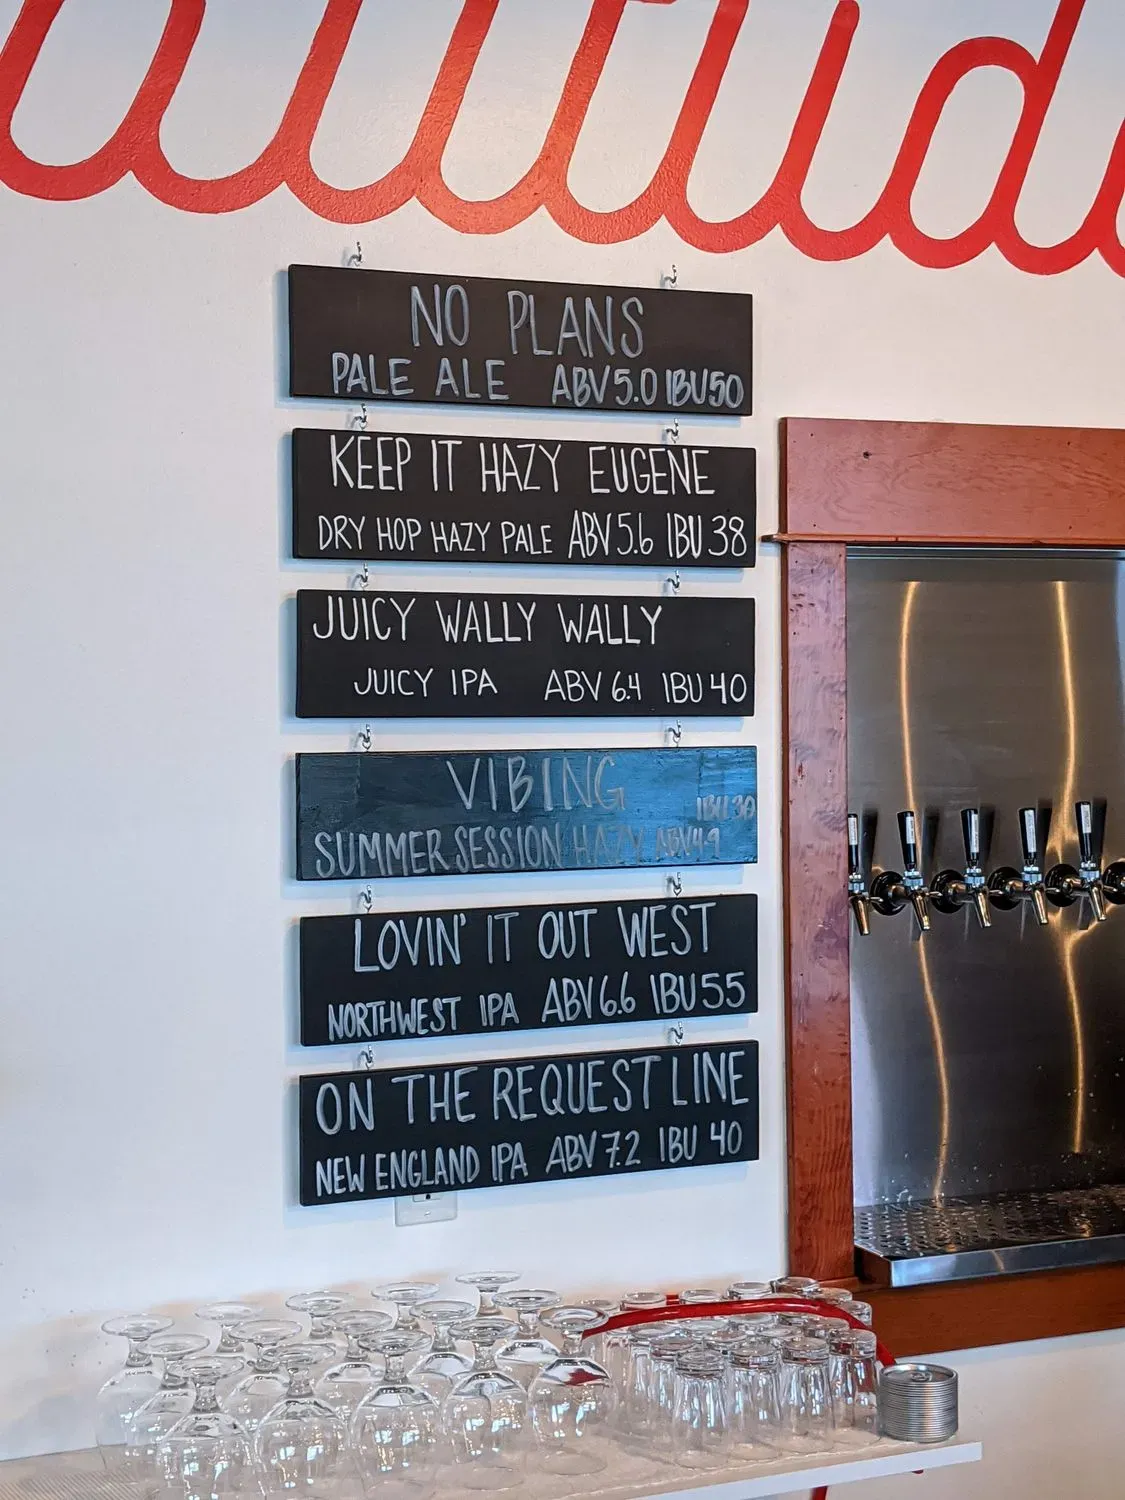 NO PLANS
PALE ALE ABV 5.0 IBU 50
KEEP IT HAZY EUGENE
DRY HOP HAZY PALE ABV 5.6 IBU 38
JUICY WALLY WALLY
JUICY IPA ABV 6.4 IBU 40
VIBING
IBU 30
SUMMER SESSION HAZY ABV 4.9
LOVIN' IT OUT WEST
NORTHWEST IPA ABV 6.6 IBU 55
ON THE REQUEST LINE
NEW ENGLAND IPA ABV 7.2 IBU 40